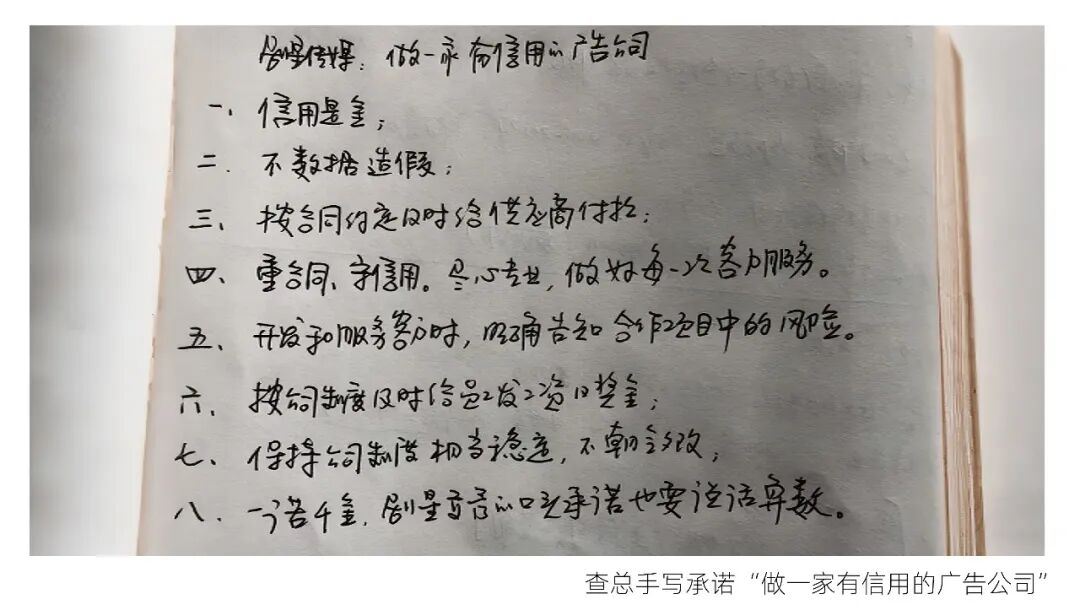 剧星传媒：做一家有信用的广告公司
一、信用是金；
二、不数据造假；
三、按合同约定及时给供应商付款；
四、重合同、守信用。尽心专业，做好每一次客户服务。
五、开发和服务客户时，明确告知合作项目中的风险。
六、按公司制度及时给员工发工资及奖金；
七、保持公司制度相当稳定，不朝令夕改；
八、一诺千金，剧星高层的口头承诺也要说话算数。
查总手写承诺“做一家有信用的广告公司”